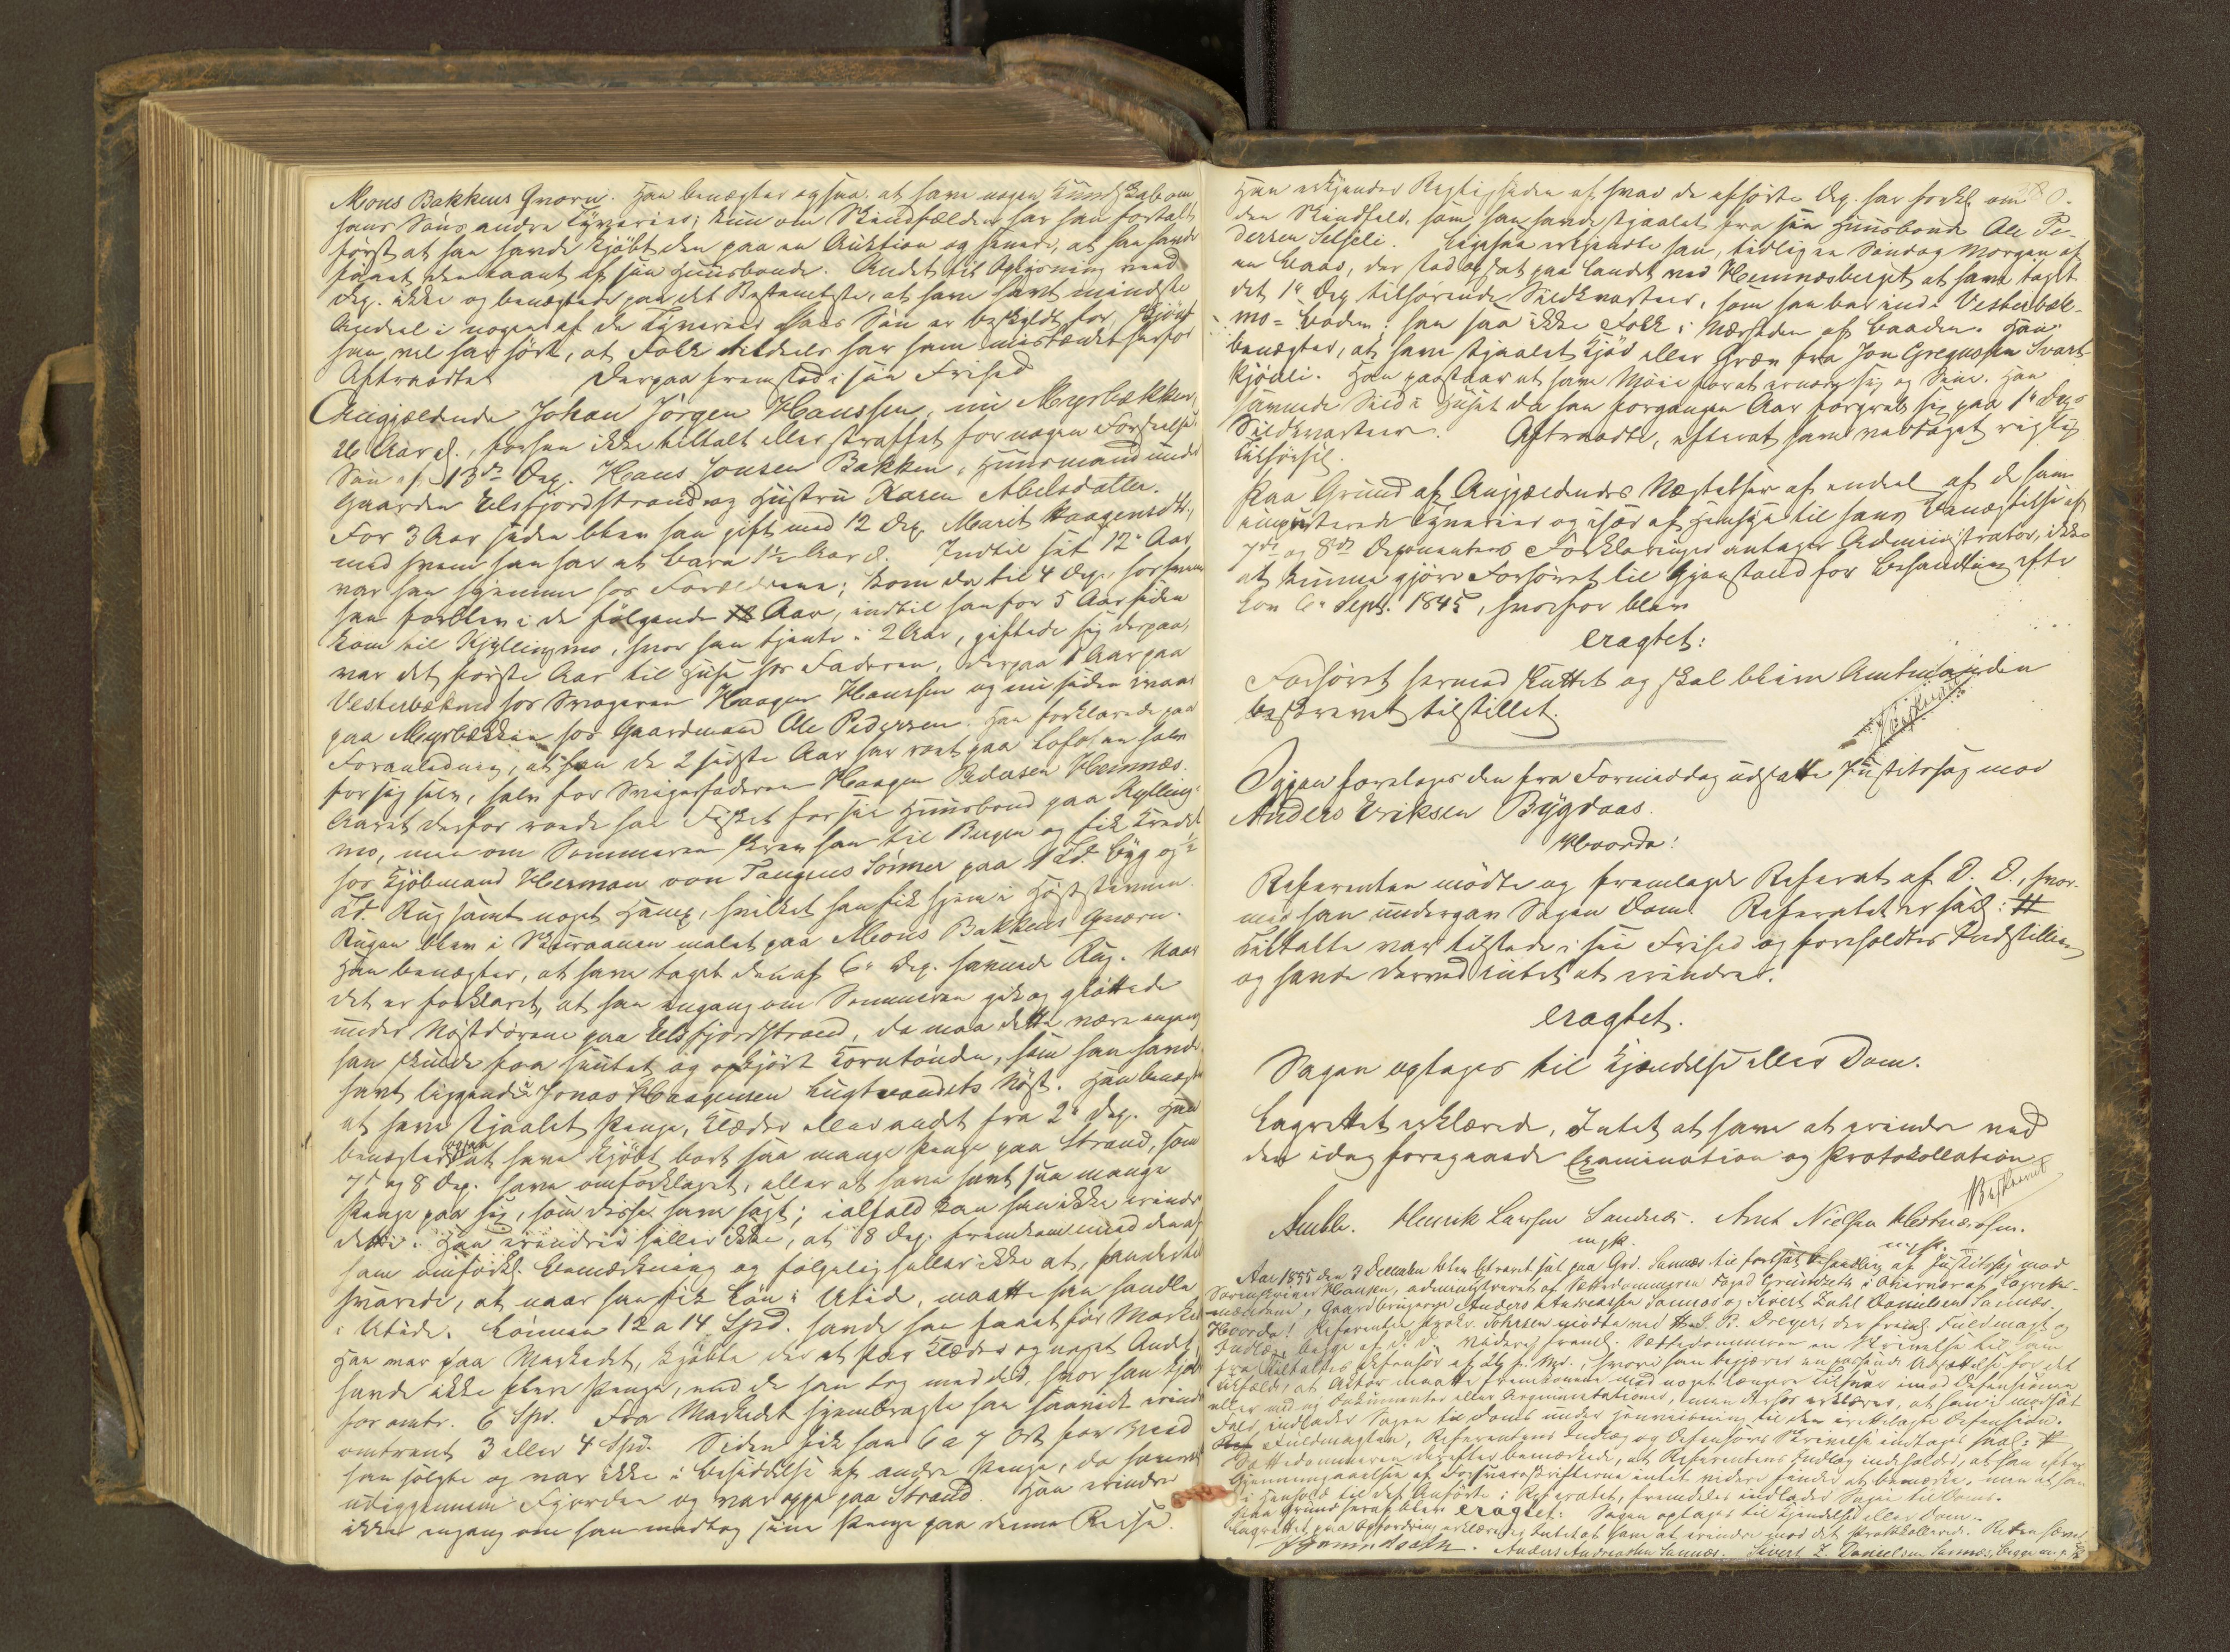 Mons Bakkens Qværn. Han benægter ogsaa at have nogen Kundskab om
hans Søns andre Tyverier; kun om Skindfælden har han fortalt
først at han havde kjøbt den paa en Auktion og senere, at han havde
faaet den laant af sin Huusbonde. Andet til Oplysning veed
Dep. ikke og benægtede paa det Bestemteste, at have havt mindste
Andeel i nogen af de Tyverier hans Søn er beskyldt for, skjønt
han vel har hørt, at Folk tildeels har ham mistænkt herfor
Aftraadte Derpaa fremstod i sin Frihed
Angjældende Johan Jørgen Hanssen, nu Myrbækken,
26 Aar gl., forhen ikke tiltalt eller straffet for nogen Forseelse.
Søn af 13de Dep. Hans Jonsen Bakken, Huusmand under
Gaarden Elsfjordstrand og Hustru Karen Abelsdatter.
For 3 Aar siden blev han gift med 12 Dep. Marit Haagensdtr.,
med hvem han har et Barn 1½ Aar gl. Indtil sit 12te Aar
var han hjemme hos Forældrene; kom da til 4 Dep. hos hvem
han forblev i de følgende Aar, indtil han for 5 Aar siden
kom til Kyllingmo, hvor han tjente i 2 Aar, giftede sig derpaa,
var det første Aar til Huse hos Faderen, derpaa 1 Aar paa
Vesterbækmo hos Svogeren Haagen Hanssen og nu siden Vaar
paa Myrbækken hos Gaardmand Ole Pedersen. Han forklarede paa
Foranledning, at han de 2 sidste Aar har roet paa Lofoten halv
for sig selv, halv for Svigerfaderen Haagen Pedersen Hemnæs.
Aaret derfor roede han Fisket for sin Huusbond paa Kylling-
mo, men om Sommeren skrev han til Bergen og fik Credit
hos Kjøbmand Herman von Tangens Sønner paa 1 Td. Byg og ½
Td. Rug samt noget Hamp, hvilket han fik hjem i Høststævnen.
Rugen blev i Skuraanen malet paa Mons Bakkens Qværn.
Han benægter, at have taget den af 6te Dep. savnede Rug. Naar
det er forklaret, at han engang om Sommeren gik og gløttede
under Nøstdørene paa Elsfjordstrand, da maa dette være engang
han skulde faa hentet og opkjørt Korntønden, som han havde
havt liggende i Jonas Haagensen Lugtvandets Nøst. Han benægter
at have stjaalet Penge, Klæder eller andet fra 2de Dep. Han
benægter ogsaa at have kjøbt bort saa mange Penge paa Strand, som
7de og 8 Dep. have omforklaret, eller at have havt saa mange
Penge paa sig, som disse have sagt; ialfald kan han ikke erindre
dette. Han erindrer heller ikke, at 8 Dep. fremkom med den af
ham omforkl. Bemærkning og følgelig heller ikke at, han dertil
svarede, at naar han fik Løn i Utide, maatte han handle
i Utide. Lønnen 12 a 14 Spd. havde han faaet før Markedet
Han var paa Markedet, kjøbte der et Par Klæder og noget Andet
havde ikke flere Penge, end de han tog med did, hvor han kjøbte
for omtr. 6 Spd. Fra Markedet hjembragte han saavidt erindres
omtrent 3 eller 4 Spd. Siden fik han 6 a 7 Ort for Veed
han solgte og var ikke i Besiddelse af andre Penge, da han reiste
udiggjennem Fjorden og var oppe paa Strand. Han erindrer
ikke engang om han medtog sine Penge paa denne Reise.
Han erkjender Rigtigheden af hvad de afhørte Dep. har forkl. om
den Skindfeld, som han havde stjaalet fra sin Huusbonde Ole Pe-
dersen Selfeli. Ligesaa erkjendte han, tidlig en Søndag Morgen af
en Baad, der stod opsat paa Landet ved Hemnæsberget at have taget
det 1ste Dep. tilhørende Sildkvarteer, som han bar ind i Vesterbæk-
mo-Boden; han saa ikke Folk i Nærheden af Baaden. Han
benægter, at have stjaalet Kjød eller Græn fra Jon Gregussen Svart-
kjønli. Han paastaar at have Møie for at ernære sig og Sine. Han
savnede Sild i Huset da han forgangen Aar forgreb sig paa 1ste Dep.s
Sildkvarteer. Aftraadte, efterat have vedtaget rigtig
Tilførsel.
Paa Grund af Angjældendes Nægtelser af endel af de ham
imputerede Tyverier og især af Hensyn til hans Benægtelse af
7de og 8de Deponenters Forklaringer antager Administrator, ikke
at kunne gjøre Forhøret til Gjenstand for Behandling efter
Lov 6te Septr. 1845, hvorfor blev
eragtet:
Forhøret hermed sluttet og skal blive Amtmanden
beskrevet tilstillet.
Beskrevet
Igjen foretoges den fra Formiddag udsatte Justitssag mod
Anders Eriksen Bygdaas.
Hvorda:
Referenten mødte og fremlagde Referat af D. D., hvor-
med han undergav Sagen Dom. Referatet er saal: #
Tiltalte var tilstede i sin Frihed og foreholdtes Indstilling
og havde derved intet at erindre.
eragtet.
Sagen optages til Kjendelse eller Dom.
Lagrettet erklærede, Intet at have at erindre ved
den idag foregaaede Examination og Protokollation.
Beskrevet
Amble. Henrik Larssen Sandnæs. Arnt Nielsen Hestnæsøen.
m.f.P. m.f.P.
Aar 1855 den 3 December blev Extraret sat paa Grd. Sannæs til fortsat Behandling af Justitssag mod
Hansen, administreret af Sættedommeren Foged i Overvær af Lagrette-
mændene, Gaardbrugerne Anders Andreassen Sannæs og Sivert Zahl Danielsen Sannæs.
Hvorda! Referenten Prokr. Johnsen mødte ved R. Dreyer, der freml. Fuldmagt og
Indlæg, begge af D. D. Videre freml. Sættedommeren en Skrivelse til ham
fra Tiltaltes Defensor af 24 f. Md., hvori han begjærer en passende Udsættelse for det
Tilfælde, at Aktor maatte fremkomme med noget længere Tilsvar imod Defensionen
eller med ny Dokumenter eller Argumentationer, men derhos erklærer, at han i modsat
Fald indlader Sagen til Doms under Henviisning til den irettelagte Defension.
Fuldmagten, Referentens Indlæg og Defensors Skrivelse indtages saal: #
Sættedommeren derefter bemærkede, at Referentens Indlæg indeholder, at han efter
Gjennemgaaelse af Forsvarsskrifterne intet videre finder at bemærke, men at han
i Henhold til det Anførte i Referatet, fremdeles indlader Sagen til Doms.
Paa Grund heraf blev eragtet: Sagen optages til Kjendelse eller Dom.
Lagrettet paa Opfordring erklærede, Intet at have at erindre mod det Protokollerede. Retten hævet.
Anders Andreassen Sannæs. Sivert Z. Danielsen Sannæs, begge m. f. P.